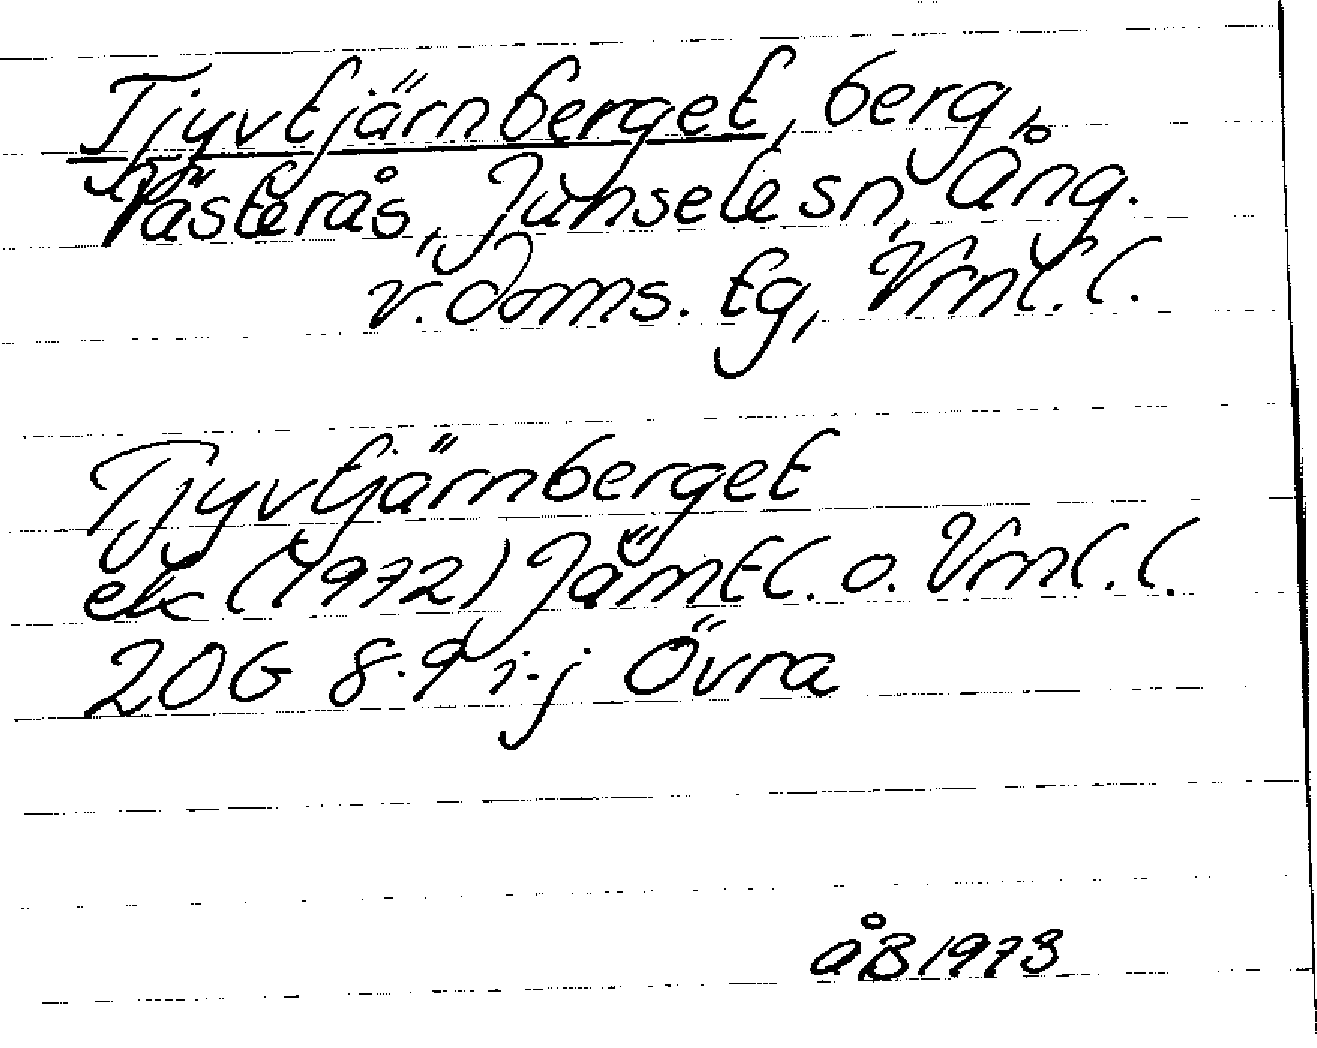 Tjyvtjärnberget, berg,
Västerås, Junsele sn, Ång.
v. doms. tg, Vrnl. l.
Tjyvtjärnberget
ek (1972) Jämtl. o. Vrnl. l.
20G 8-9 i-j Övra
ÅB 1973